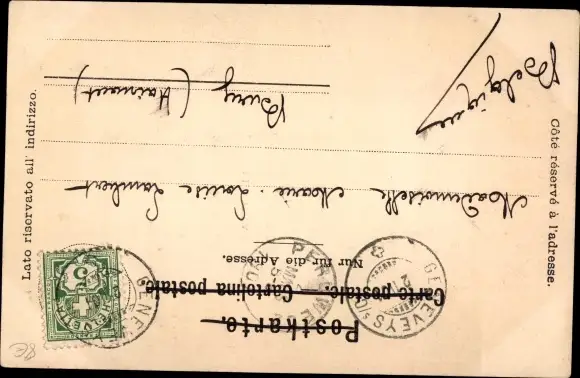 Postkarte.
Carte postale. Cartolina postale.
Nur für die Adresse.
Côté réservé à l'adresse.
Lato riservato all' indirizzo.
Mademoiselle Marie-Louise Lambert
Bury
(Hainaut)
Belgique
GENEVEYS s/
HELVETIA
5